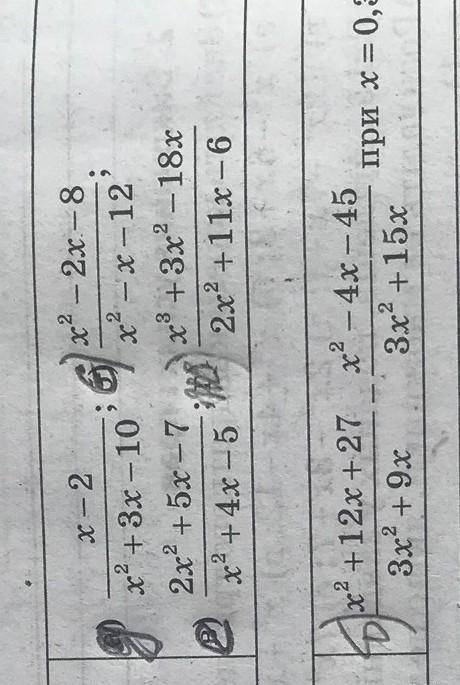 (x − 2)/(x² + 3x − 10); б) (x² − 2x − 8)/(x² − x − 12);
(2x² + 5x − 7)/(x² + 4x − 5); (x³ + 3x² − 18x)/(2x² + 11x − 6)
(x² + 12x + 27)/(3x² + 9x) − (x² − 4x − 45)/(3x² + 15x) при x = 0,